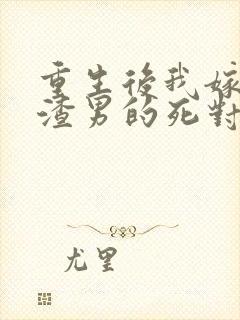 重生後我嫁
渣男的死對
尤里